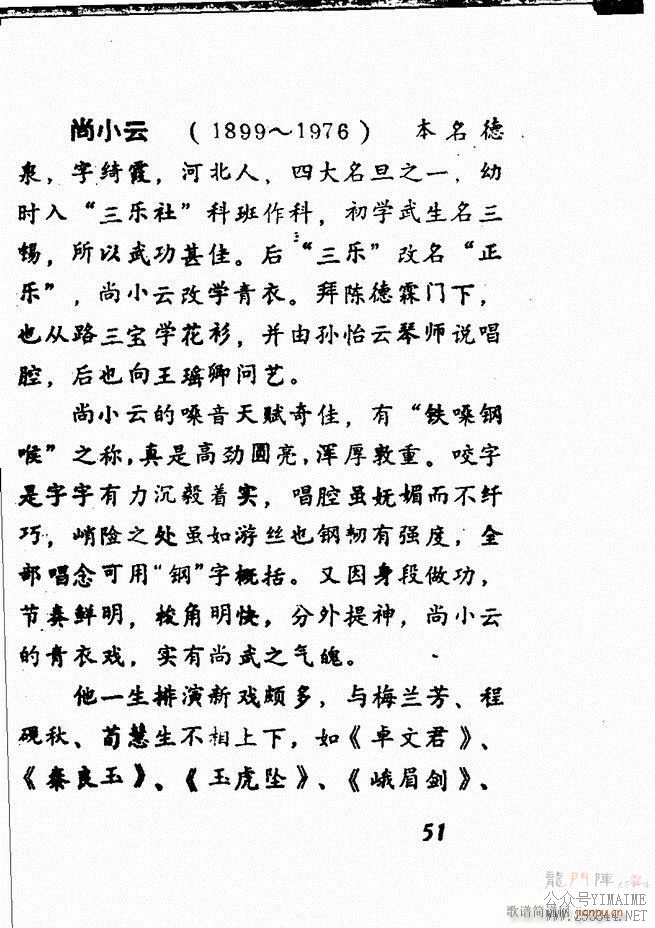 尚小云 （1899～1976） 本名德
泉，字绮霞，河北人，四大名旦之一，幼
时入“三乐社”科班作科，初学武生名三
锡，所以武功甚佳。后“三乐”改名“正
乐”，尚小云改学青衣。拜陈德霖门下，
也从路三宝学花衫，并由孙怡云琴师说唱
腔，后也向王瑶卿问艺。
尚小云的嗓音天赋奇佳，有“铁嗓钢
喉”之称，真是高劲圆亮，浑厚敦重。咬字
是字字有力沉毅着实，唱腔虽妩媚而不纤
巧，峭险之处虽如游丝也钢韧有强度，全
部唱念可用“钢”字概括。又因身段做功，
节奏鲜明，棱角明快，分外提神，尚小云
的青衣戏，实有尚武之气魄。
他一生排演新戏颇多，与梅兰芳、程
砚秋、荀慧生不相上下，如《卓文君》、
《秦良玉》、《玉虎坠》、《峨眉剑》、
51
龍門陣
公众号YIMAIME
歌谱简谱网